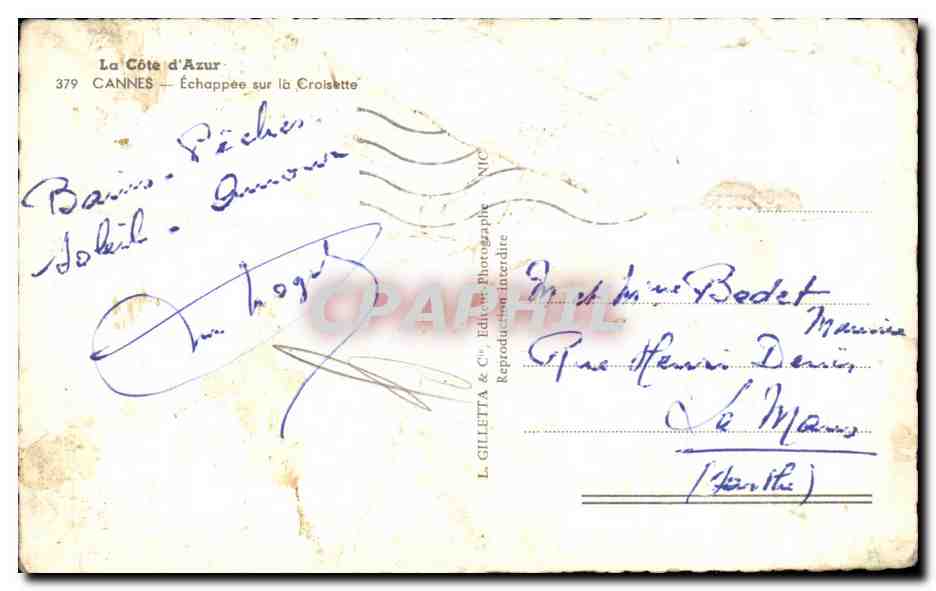 La Côte d'Azur
379 CANNES — Échappée sur la Croisette
Bains - Pêches
Soleil - Amour
L. GILLETTA & Cie, Editeur-Photographe NIC
Reproduction interdite
M et Mme Bedet
Maurice
Rue Henri
Le Mans
(Sarthe)
CPAPHIL